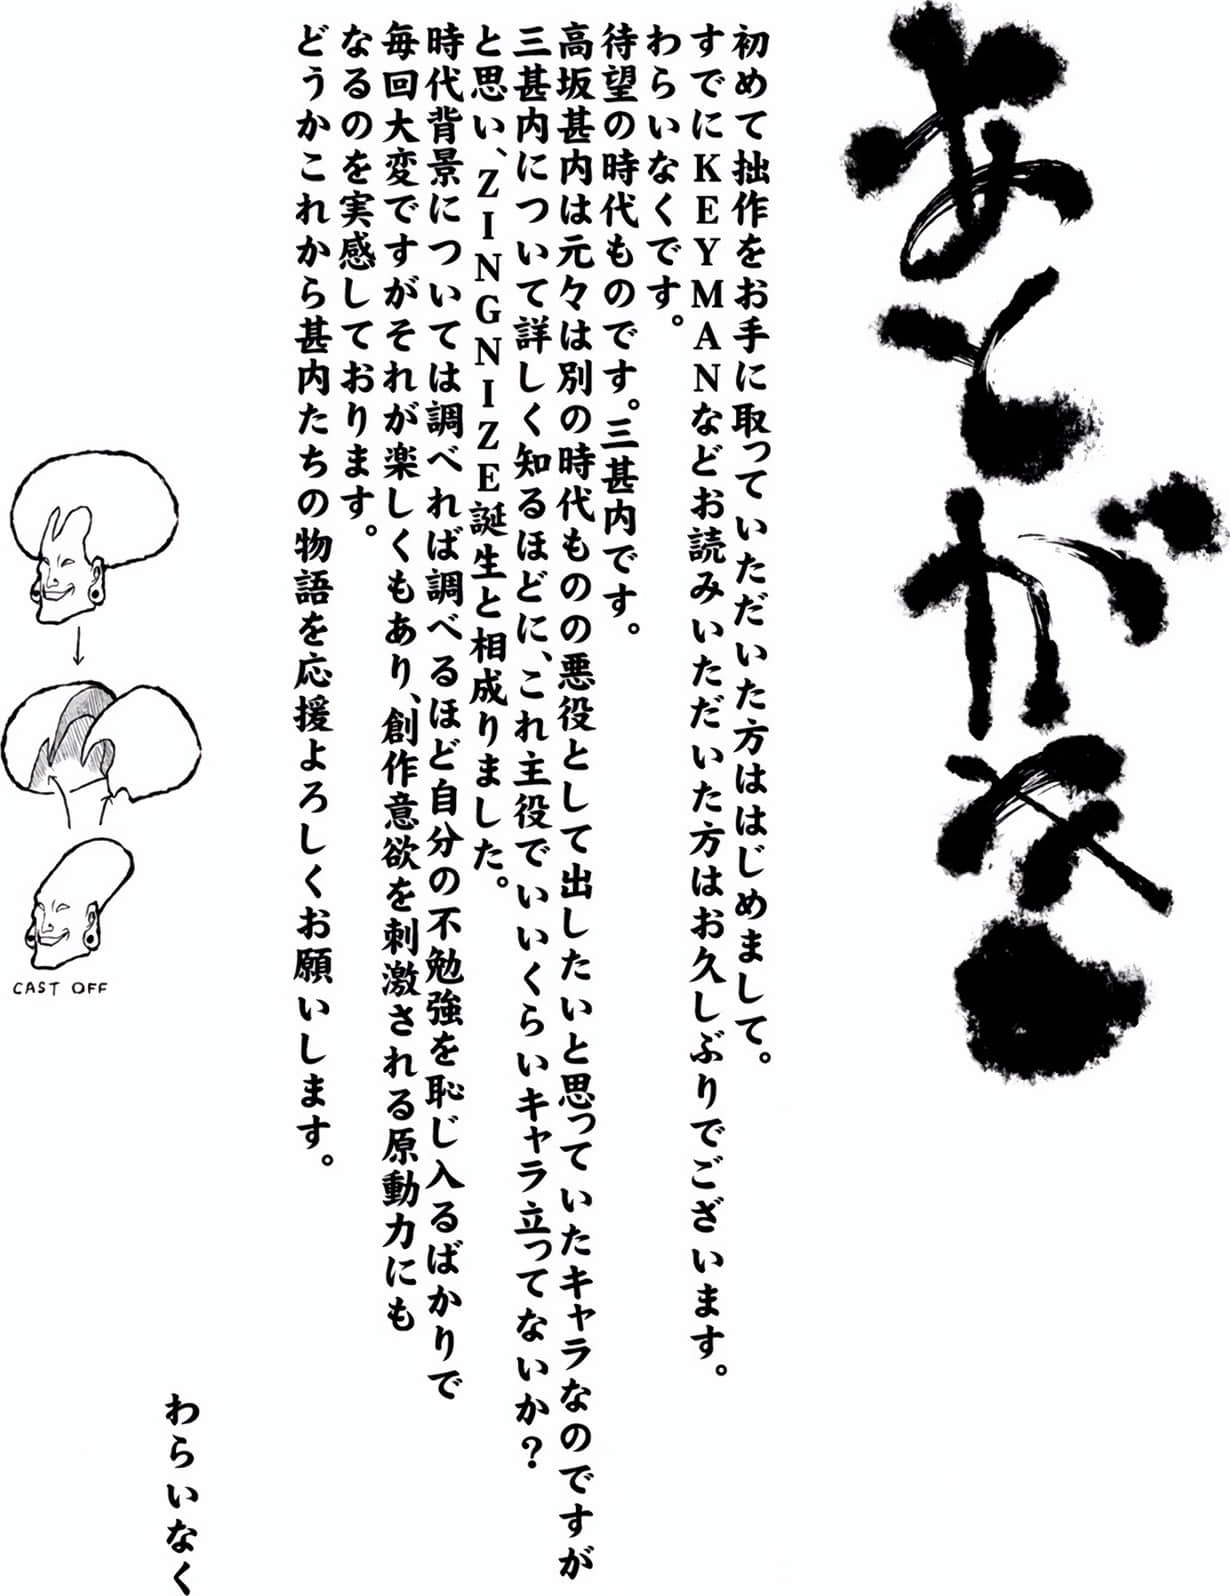 あとがき
初めて拙作をお手に取っていただいた方ははじめまして。
すでにKEYMANなどお読みいただいた方はお久しぶりでございます。
わらいなくです。
待望の時代ものです。三甚内です。
高坂甚内は元々は別の時代ものの悪役として出したいと思っていたキャラなのですが
三甚内について詳しく知るほどに、これ主役でいいくらいキャラ立ってないか？
と思い、ZINGNIZE誕生と相成りました。
時代背景については調べれば調べるほど自分の不勉強を恥じ入るばかりで
毎回大変ですがそれが楽しくもあり、創作意欲を刺激される原動力にも
なるのを実感しております。
どうかこれから甚内たちの物語を応援よろしくお願いします。
わらいなく
CAST OFF